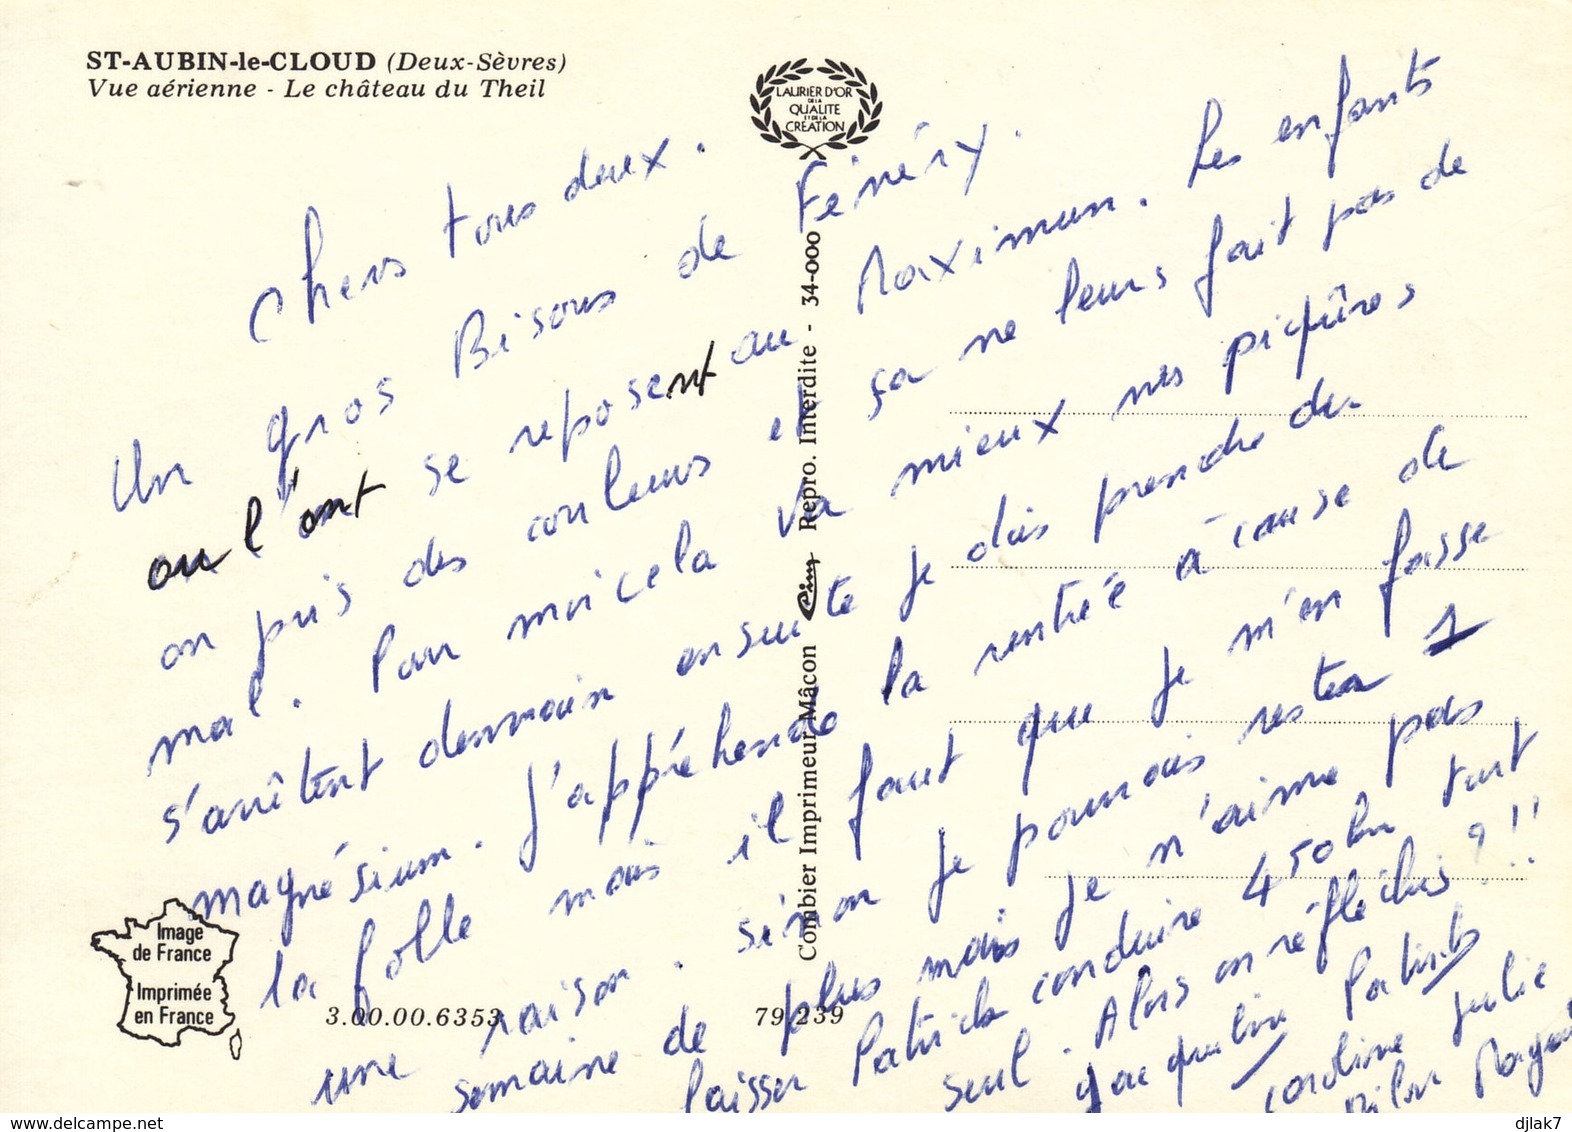 ST-AUBIN-le-CLOUD (Deux-Sèvres)
Vue aérienne - Le château du Theil
LAURIER D'OR
DE LA
QUALITE
ET DE LA
CRÉATION
Chers tous deux.
Un gros Bisous de Fénéry.
ou l'ont se reposent au Maximum. Les enfants
on pris des couleurs et ça ne leurs fait pas de
mal. Pour moi cela va mieux mes piqûres
s'arrêtent demain ensuite je dois prendre du
magnésium. J'appréhende la rentrée à cause de
la folle mais il faut que je m'en fasse
une raison. Sinon je pourrais rester 1
semaine de plus mais je n'aime pas
laisser Patrick conduire 450 km tout
seul. Alors on réfléchis?!!
Jacqueline Patrick
Caroline Julie
Combier Imprimeur Mâcon Cim Repro. Interdite - 34-000
Image
de France
Imprimée
en France
3.00.00.6353
79 239
delcampe.net
djlak7